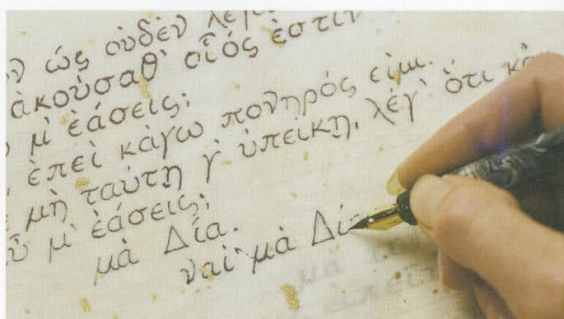 ὡς οὐδὲν λέγ
ἀκούσαθ' οἷός ἐστιν
μ' ἐάσεις;
ἐπεὶ κἀγὼ πονηρός εἰμι.
μὴ ταύτῃ γ' ὑπείκῃ, λέγ' ὅτι κἀ
μ' ἐάσεις;
μὰ Δία.
ναὶ μὰ Δί